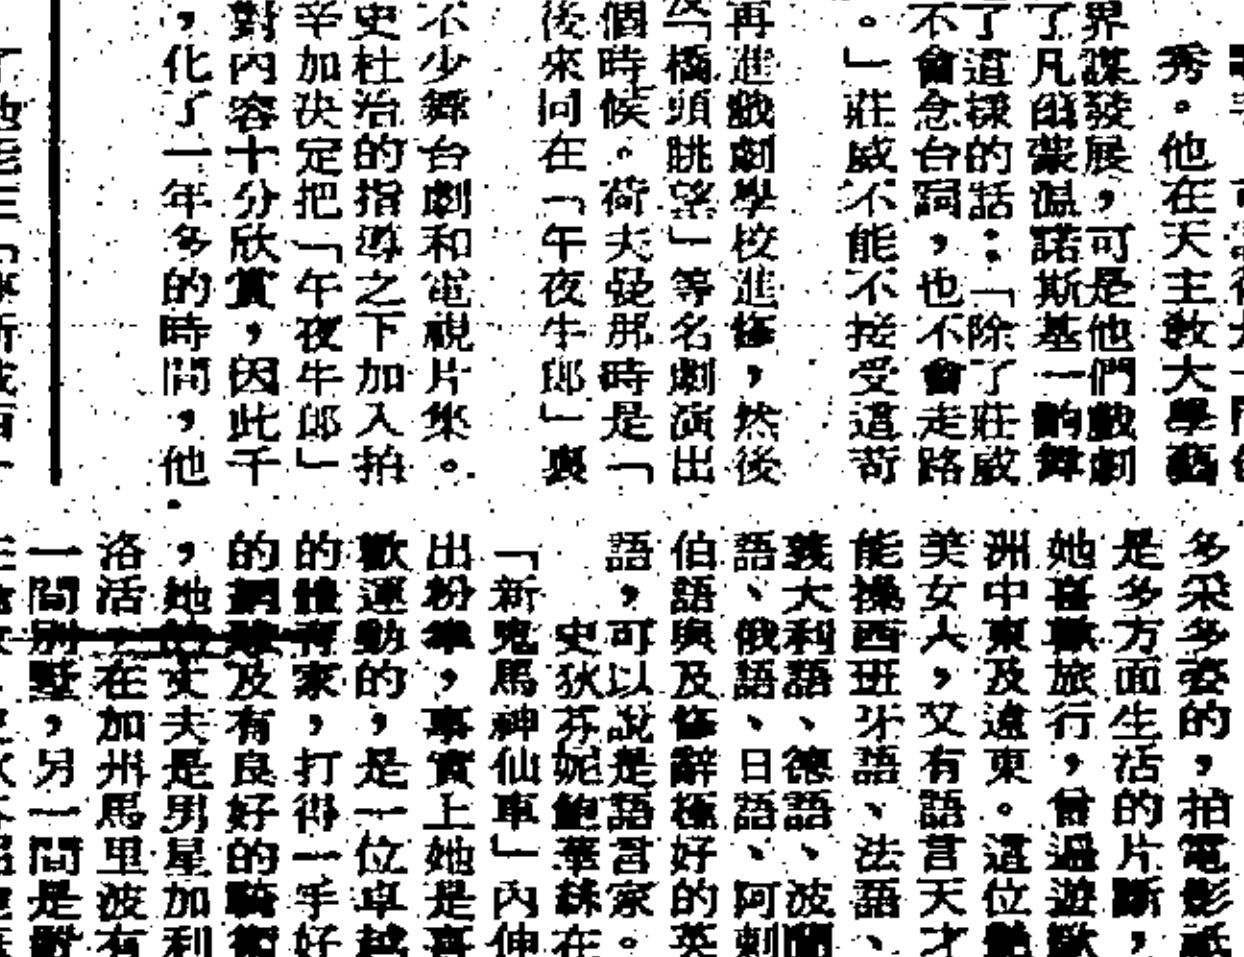 秀。他在天主敎大學藝
界謀發展，可是他們戲劇
了凡幽萊温諾斯基一齣舞
了這樣的話：「除了莊威
不會念台詞，也不會走路
。」莊威不能不接受這苛
再進戲劇學校進修，然後
「橋頭眺望」等名劇演出
個時候。荷夫曼那時是「
後來同在「午夜牛郎」裏
不少舞台劇和電視片集。
史杜治的指導之下加入拍
辛加決定把「午夜牛郎」
對內容十分欣賞，因此千
，化了一年多的時間，他
多采多姿的，拍電影祇
是多方面生活的片斷，
她喜歡旅行，曾過遊歐
洲中東及遠東。這位艷
美女人，又有語言天才
能操西班牙語、法語、
義大利語、德語、波蘭
語、俄語、日語、阿剌
伯語與及修辭極好的英
語，可以說是語言家。
史狄芬妮鮑華絲在
「新鬼馬神仙車」內伸
出粉拳，事實上她是喜
歡運動的，是一位卓越
的體育家，打得一手好
的網球及有良好的騎術
，她的丈夫是男星加利
洛活，在加州馬里波有
一間別墅，另一間是